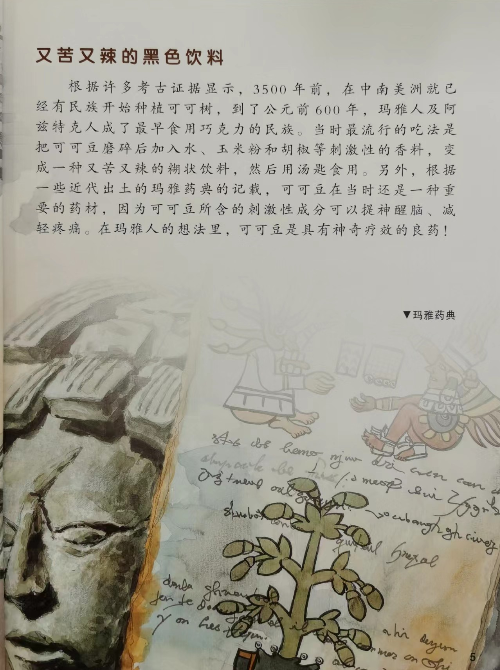 又苦又辣的黑色饮料
根据许多考古证据显示，3500年前，在中南美洲就已
经有民族开始种植可可树，到了公元前600年，玛雅人及阿
兹特克人成了最早食用巧克力的民族。当时最流行的吃法是
把可可豆磨碎后加入水、玉米粉和胡椒等刺激性的香料，变
成一种又苦又辣的糊状饮料，然后用汤匙食用。另外，根据
一些近代出土的玛雅药典的记载，可可豆在当时还是一种重
要的药材，因为可可豆所含的刺激性成分可以提神醒脑、减
轻疼痛。在玛雅人的想法里，可可豆是具有神奇疗效的良药！
▼玛雅药典
5